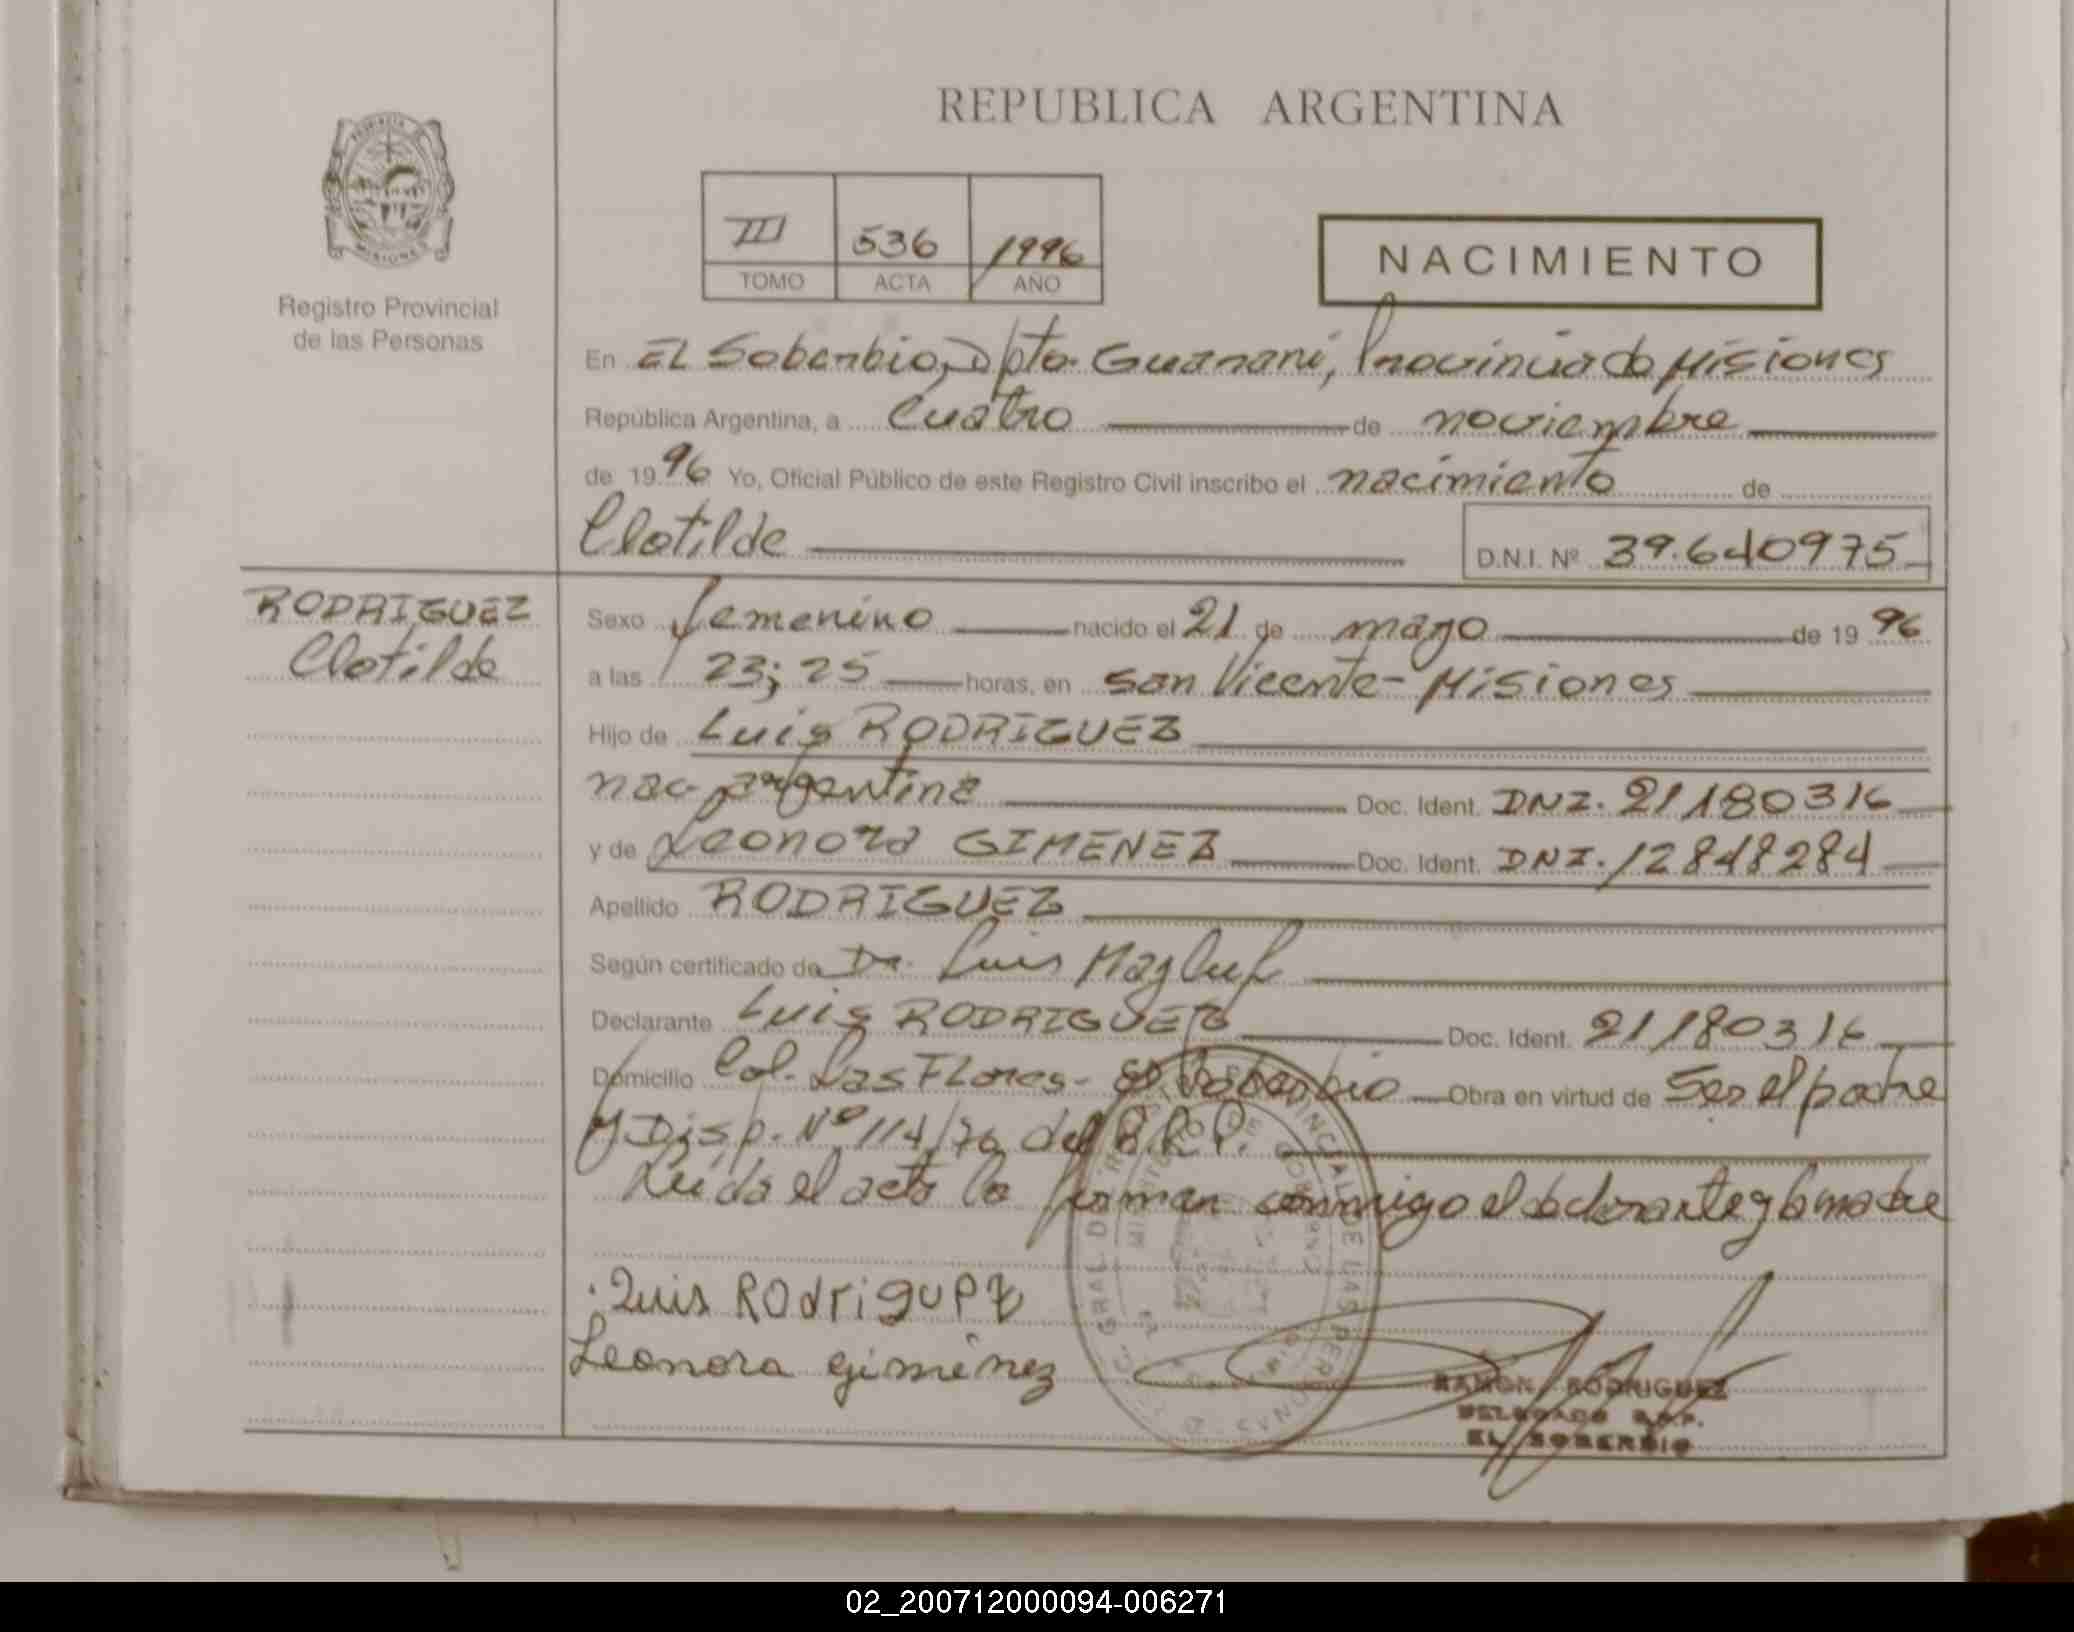 REPUBLICA ARGENTINA
PROVINCIA DE
MISIONES
Registro Provincial
de las Personas
III 536 1996
TOMO ACTA AÑO
NACIMIENTO
En EL Soberbio, Dpto. Guarani, Provincia de Misiones
República Argentina, a cuatro de noviembre
de 1996 Yo, Oficial Público de este Registro Civil inscribo el nacimiento de
Clotilde D.N.I. Nº 39.640975
RODRIGUEZ
Clotilde
Sexo femenino nacido el 21 de mayo de 1996
a las 23;25 horas, en San Vicente - Misiones
Hijo de Luis RODRIGUEZ
nac. argentina Doc. Ident. DNI. 21180316
y de Leonora GIMENEZ Doc. Ident. DNI. 12848284
Apellido RODRIGUEZ
Según certificado de Dr. Luis Magluf
Declarante Luis RODRIGUEZ Doc. Ident. 21180316
Domicilio Col. Las Flores - El Soberbio Obra en virtud de Ser el padre
y Disp. Nº 114/76 del R.P.P.
Leída el acta la firman conmigo el declarante y la madre
Luis RODriguez
Leonora gimenez
RAMON RODRIGUEZ
DELEGADO R.P.P.
EL SOBERBIO
02_200712000094-006271